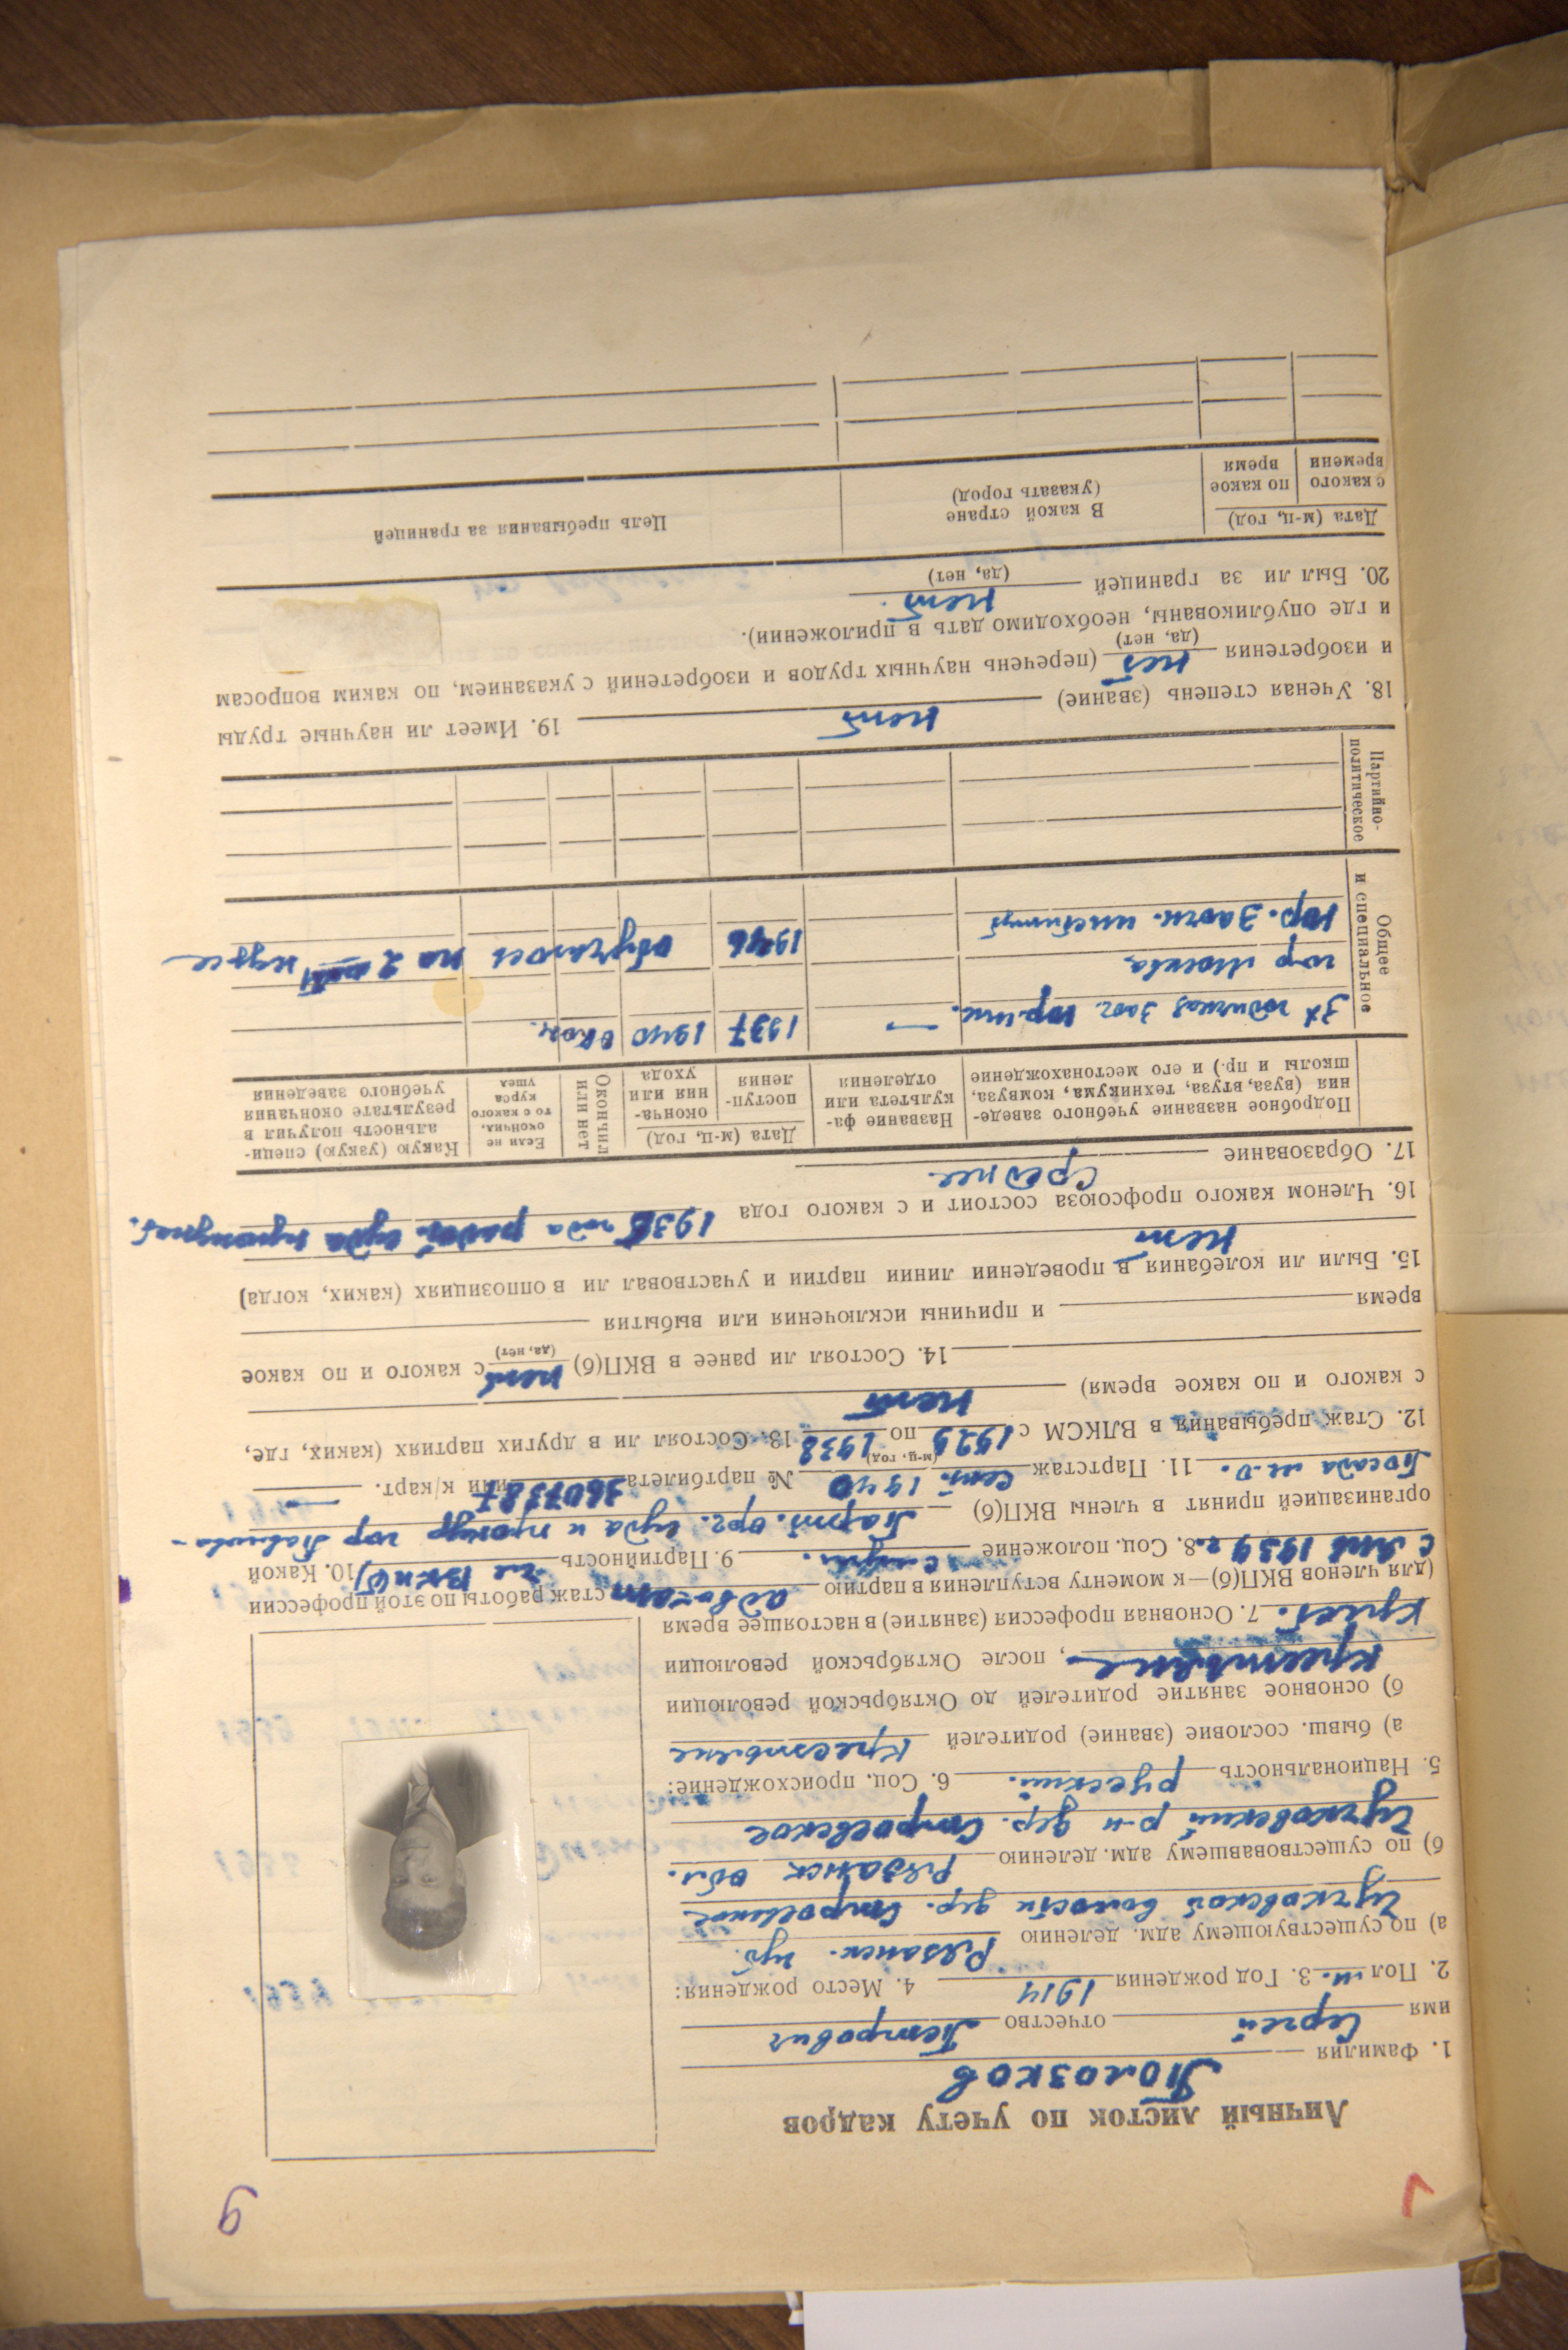 9
Личный листок по учету кадров
1. Фамилия Полозков
имя Сергей отчество Петрович
2. Пол м. 3. Год рождения 1914 4. Место рождения:
а) по существующему адм. делению Рязанск. губ.
Чучковской волости дер. Строевское
б) по существовавшему адм. делению Рязанск обл.
Чучковский р-н дер. Строевское
5. Национальность русский. 6. Соц. происхождение:
а) бывш. сословие (звание) родителей крестьяне
б) основное занятие родителей до Октябрьской революции
крестьяне, после Октябрьской революции
крест. 7. Основная профессия (занятие) в настоящее время
(для членов ВКП(б)—к моменту вступления в партию адвокат стаж работы по этой профессии
с 1939 г. 8. Соц. положение служ. 9. Партийность чл ВКП(б) 10. Какой
организацией принят в члены ВКП(б) Парт. орг. суда и прокур гор Павлово-
Посада м.о. 11. Партстаж 1940 (м-ц. год) № партбилета 3607387 или к/карт. —
12. Стаж пребывания в ВЛКСМ с 1929 по 1938 13. Состоял ли в других партиях (каких, где,
с какого и по какое время) нет
14. Состоял ли ранее в ВКП(б) нет (да, нет) с какого и по какое
время и причины исключения или выбытия
15. Были ли колебания в проведении линии партии и участвовал ли в оппозициях (каких, когда)
нет
16. Членом какого профсоюза состоит и с какого года года суда прокурат.
17. Образование среднее
Подробное название учебного заведения (вуза, втуза, техникума, комвуза, школы и пр.) и его местонахождение
Название факультета или отделения
Дата (м-ц, год)
поступления
окончания или ухода
Окончил или нет
Если не окончил, то с какого курса ушел
Какую (узкую) специальность получил в результате окончания учебного заведения
Общее и специальное
3х годичная заоч. юр. шк. — 1937 1940 окон.
гор Москва
Юр. заочн. институт 1946 обучаюсь на 2 курсе
Партийно-политическое
18. Ученая степень (звание) нет 19. Имеет ли научные труды
и изобретения нет (да, нет) (перечень научных трудов и изобретений с указанием, по каким вопросам
и где опубликованы, необходимо дать в приложении).
20. Был ли за границей нет. (да, нет)
Дата (м-ц, год)
с какого времени
по какое время
В какой стране (указать город)
Цель пребывания за границей